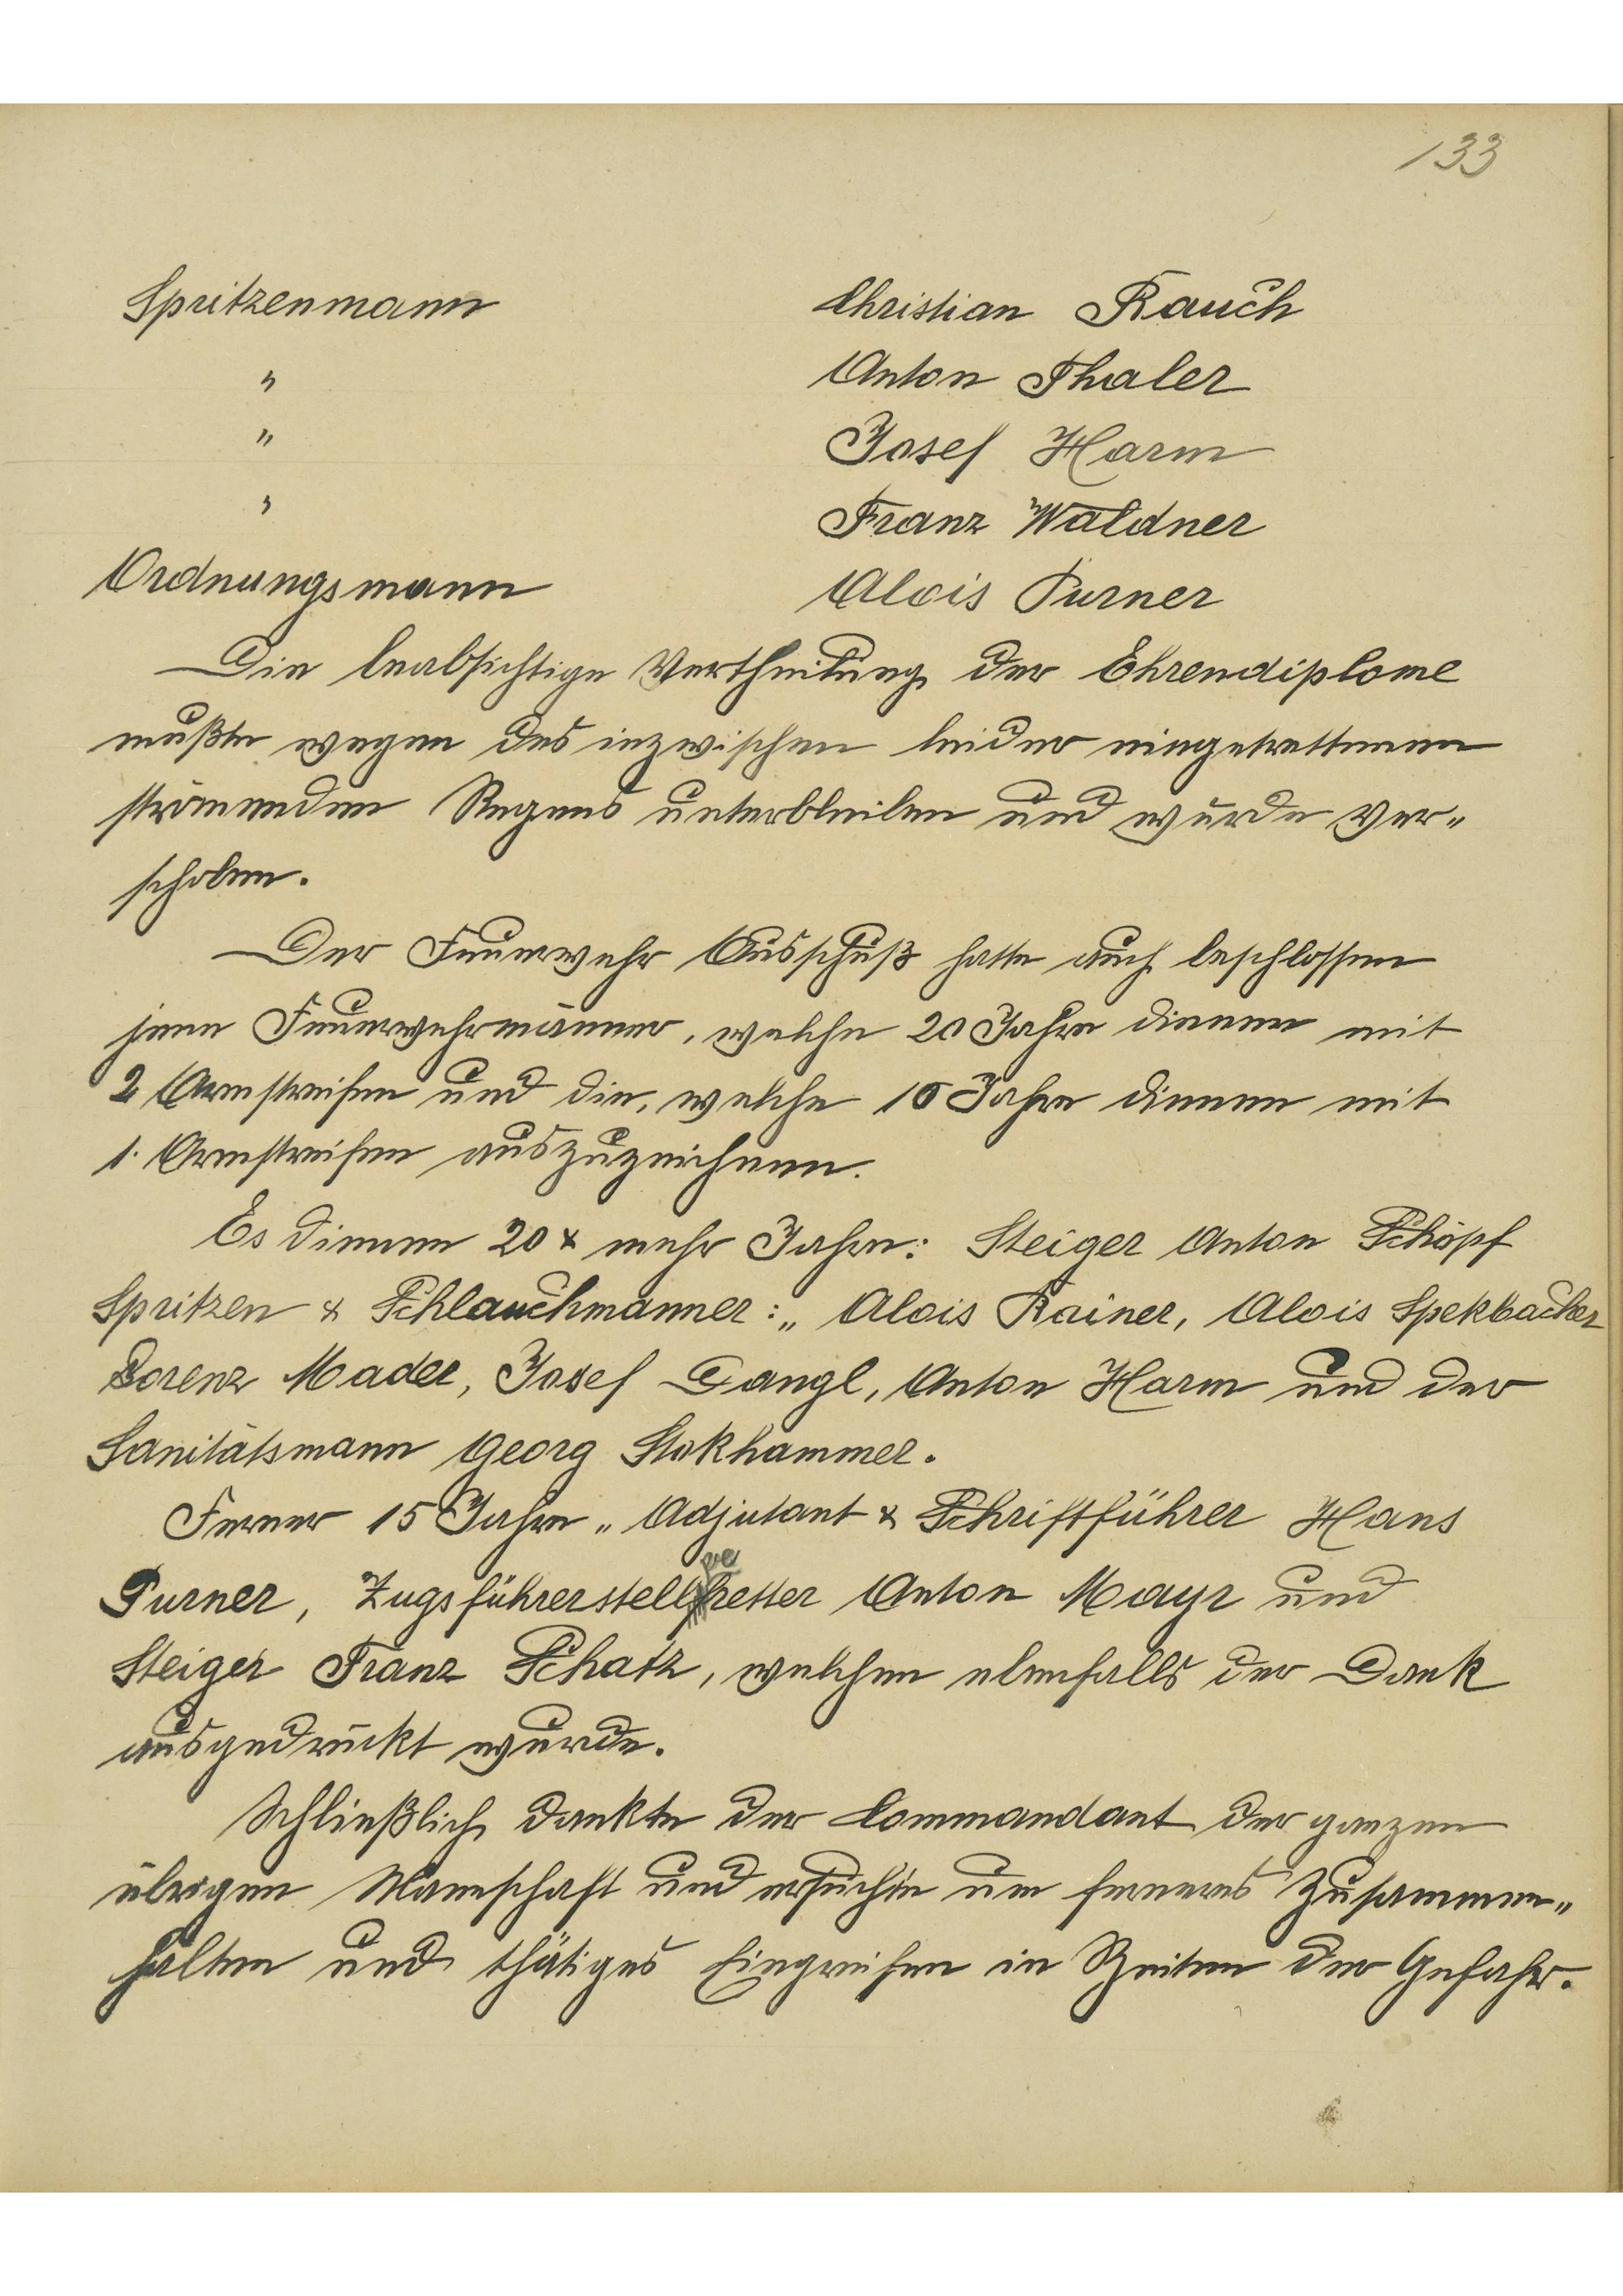 133
Spritzenmann Christian Rauch
" Anton Thaler
" Josef Harm
" Franz Waldner
Ordnungsmann Alois Purner
Die beabsichtige Vertheilung der Ehrendiplome
mußte wegen des inzwischen leider eingetrettenen
strömenden Regens unterbleiben und wurde ver„
schoben.
Der Feuerwehr Ausschuß hatte auch beschlossen
jene Feuerwehrmänner, welche 20 Jahre dienen mit
2 Armstreifen und die, welche 15 Jahre dienen mit
1. Armstreifen auszuzeichnen.
Es dienen 20 & mehr Jahre: Steiger Anton Schöpf
Spritzen & Schlauchmänner:„ Alois Rainer, Alois Spekbacher
Lorenz Mader, Josef Dangl, Anton Harm und der
Sanitätsmann Georg Stokhammer.
Ferner 15 Jahre „ Adjutant & Schriftführer Hans
Purner, Zugsführerstellvertretter Anton Mayr und
Steiger Franz Schatz, welchen ebenfalls der Dank
ausgedrückt wurde.
Schließlich dankte der Commandant der ganzen
übrigen Mannschaft und ersuchte um ferneres Zusammen„
halten und thätiges Eingreifen in Zeiten der Gefahr.